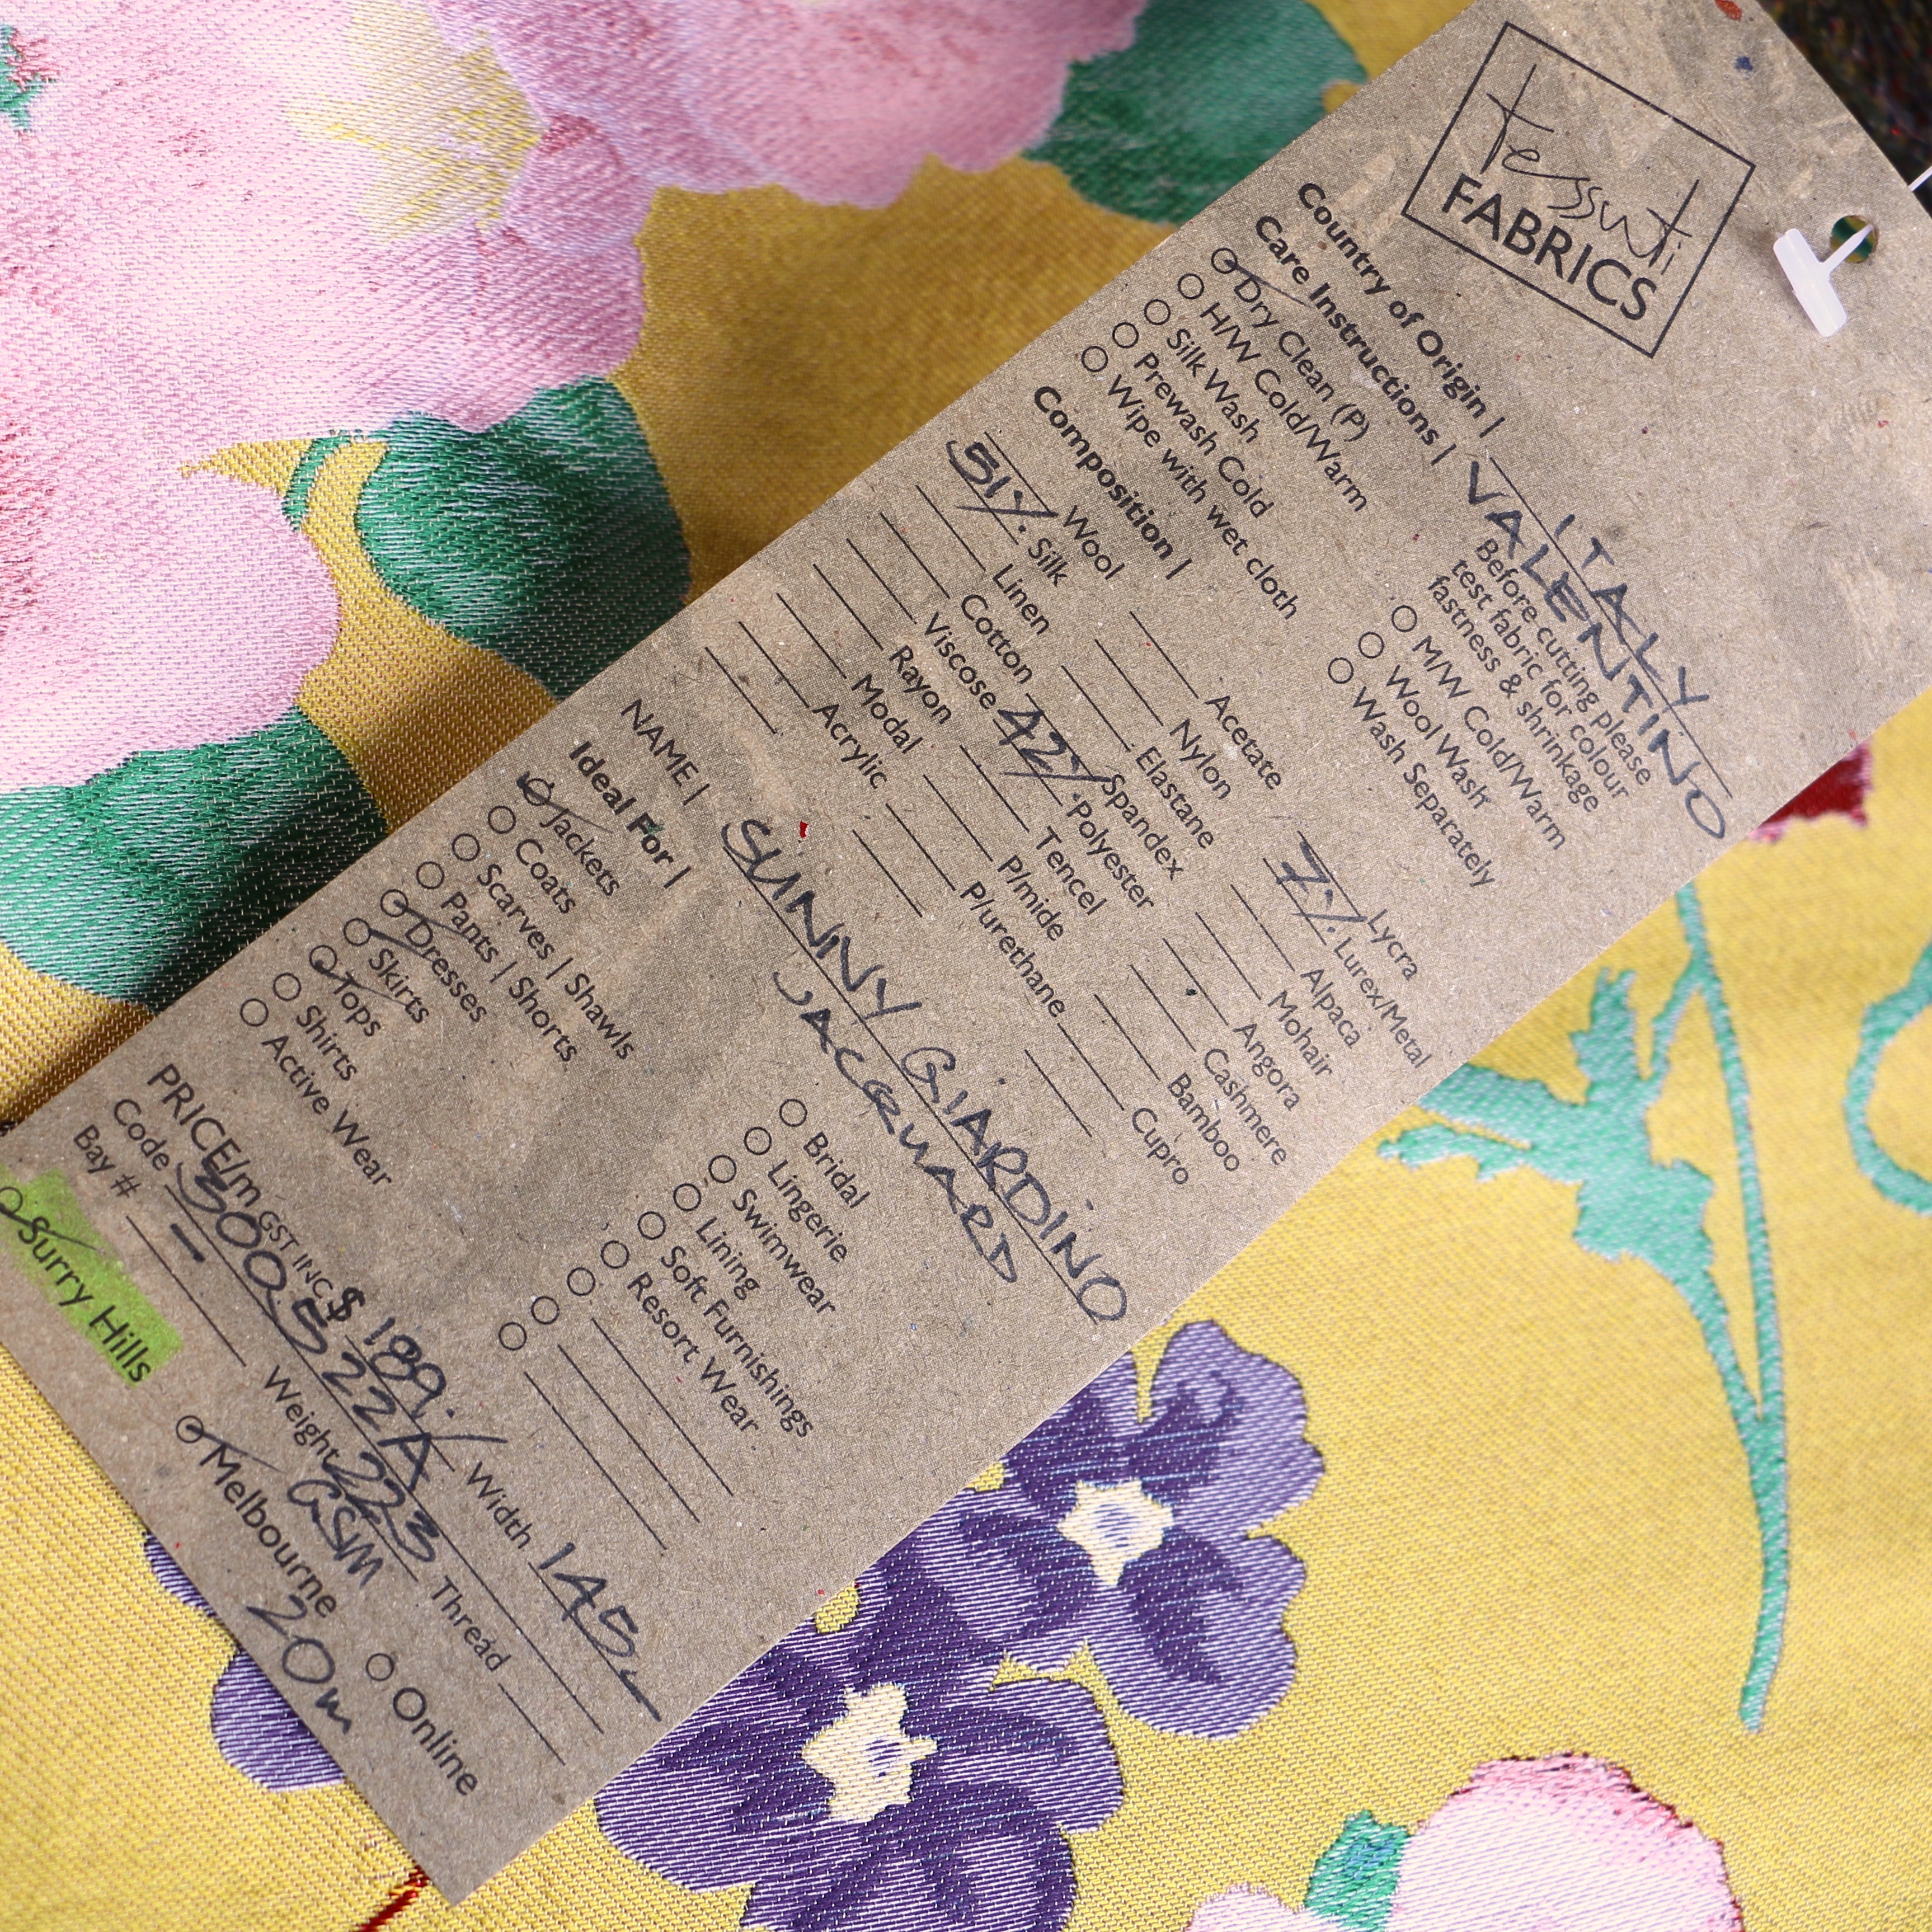 tessuti
FABRICS
Country of Origin | ITALY
Care Instructions | VALENTINO
Dry Clean (P) Before cutting please
H/W Cold/Warm test fabric for colour
Silk Wash fastness & shrinkage
Prewash Cold M/W Cold/Warm
Wipe with wet cloth Wool Wash
Wash Separately
Composition |
Wool Acetate Lycra
51% Silk Nylon 7% Lurex/Metal
Linen Elastane Alpaca
Cotton Spandex Mohair
Viscose 42% Polyester Angora
Rayon Tencel Cashmere
Modal P/mide Bamboo
Acrylic P/urethane Cupro
NAME | SUNNY GIARDINO
JACQUARD
Ideal For |
Jackets Bridal
Coats Lingerie
Scarves | Shawls Swimwear
Pants | Shorts Lining
Dresses Soft Furnishings
Skirts Resort Wear
Tops
Shirts
Active Wear
PRICE/m GST INC $ 189.- Width 145
Code 300522A
Bay # - Weight 223 GSM Thread
Surry Hills Melbourne Online
20m